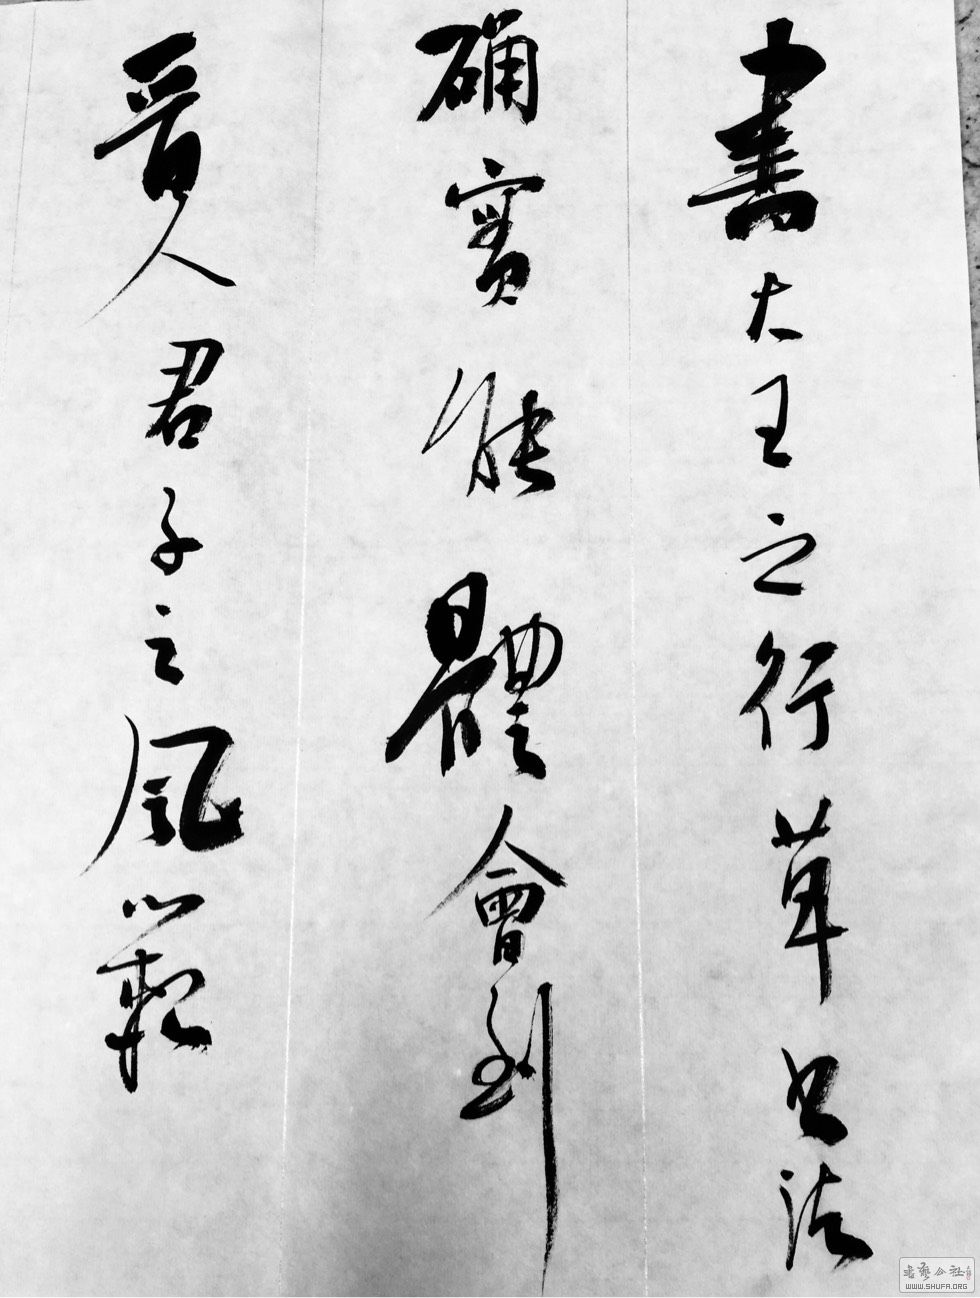 書大王之行草书法
确實能體會到
晉人君子之風範
書藝公社
WWW.SHUFA.ORG